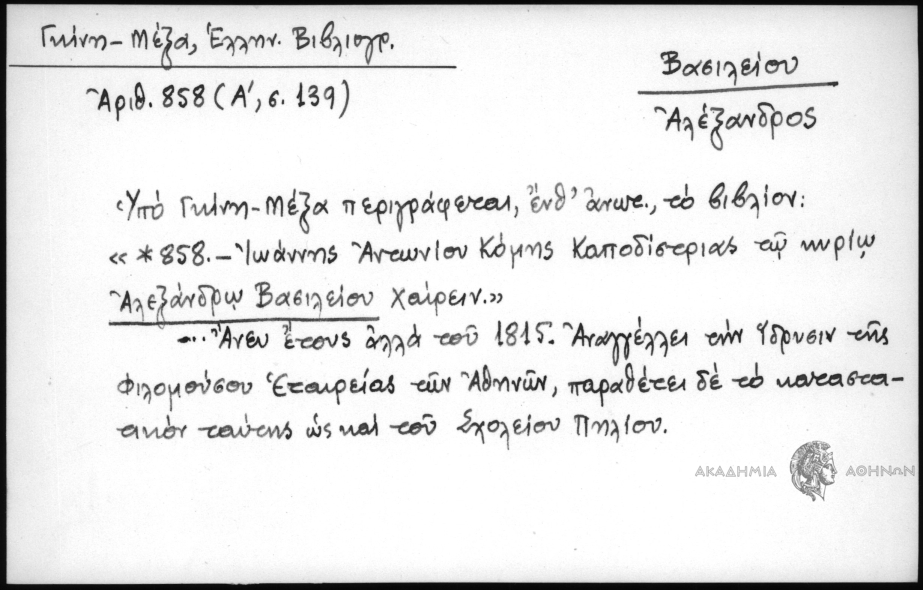 Γκίνη-Μέξα, Ἑλλην. Βιβλιογρ.
Ἀριθ. 858 (Α΄, σ. 139)
Βασιλείου
Ἀλέξανδρος
Ὑπό Γκίνη-Μέξα περιγράφεται, ἔνθ' ἀνωτ., τό βιβλίον:
« *858.- Ἰωάννης Ἀντωνίου Κόμης Καποδίστριας τῷ κυρίῳ
Ἀλεξάνδρῳ Βασιλείου χαίρειν.»
... Ἄνευ ἔτους ἀλλά τοῦ 1815. Ἀναγγέλλει τήν ἵδρυσιν τῆς
Φιλομούσου Ἑταιρείας τῶν Ἀθηνῶν, παραθέτει δέ τό καταστα-
τικόν ταύτης ὡς καί τοῦ Σχολείου Πηλίου.
ΑΚΑΔΗΜΙΑ ΑΘΗΝΩΝ